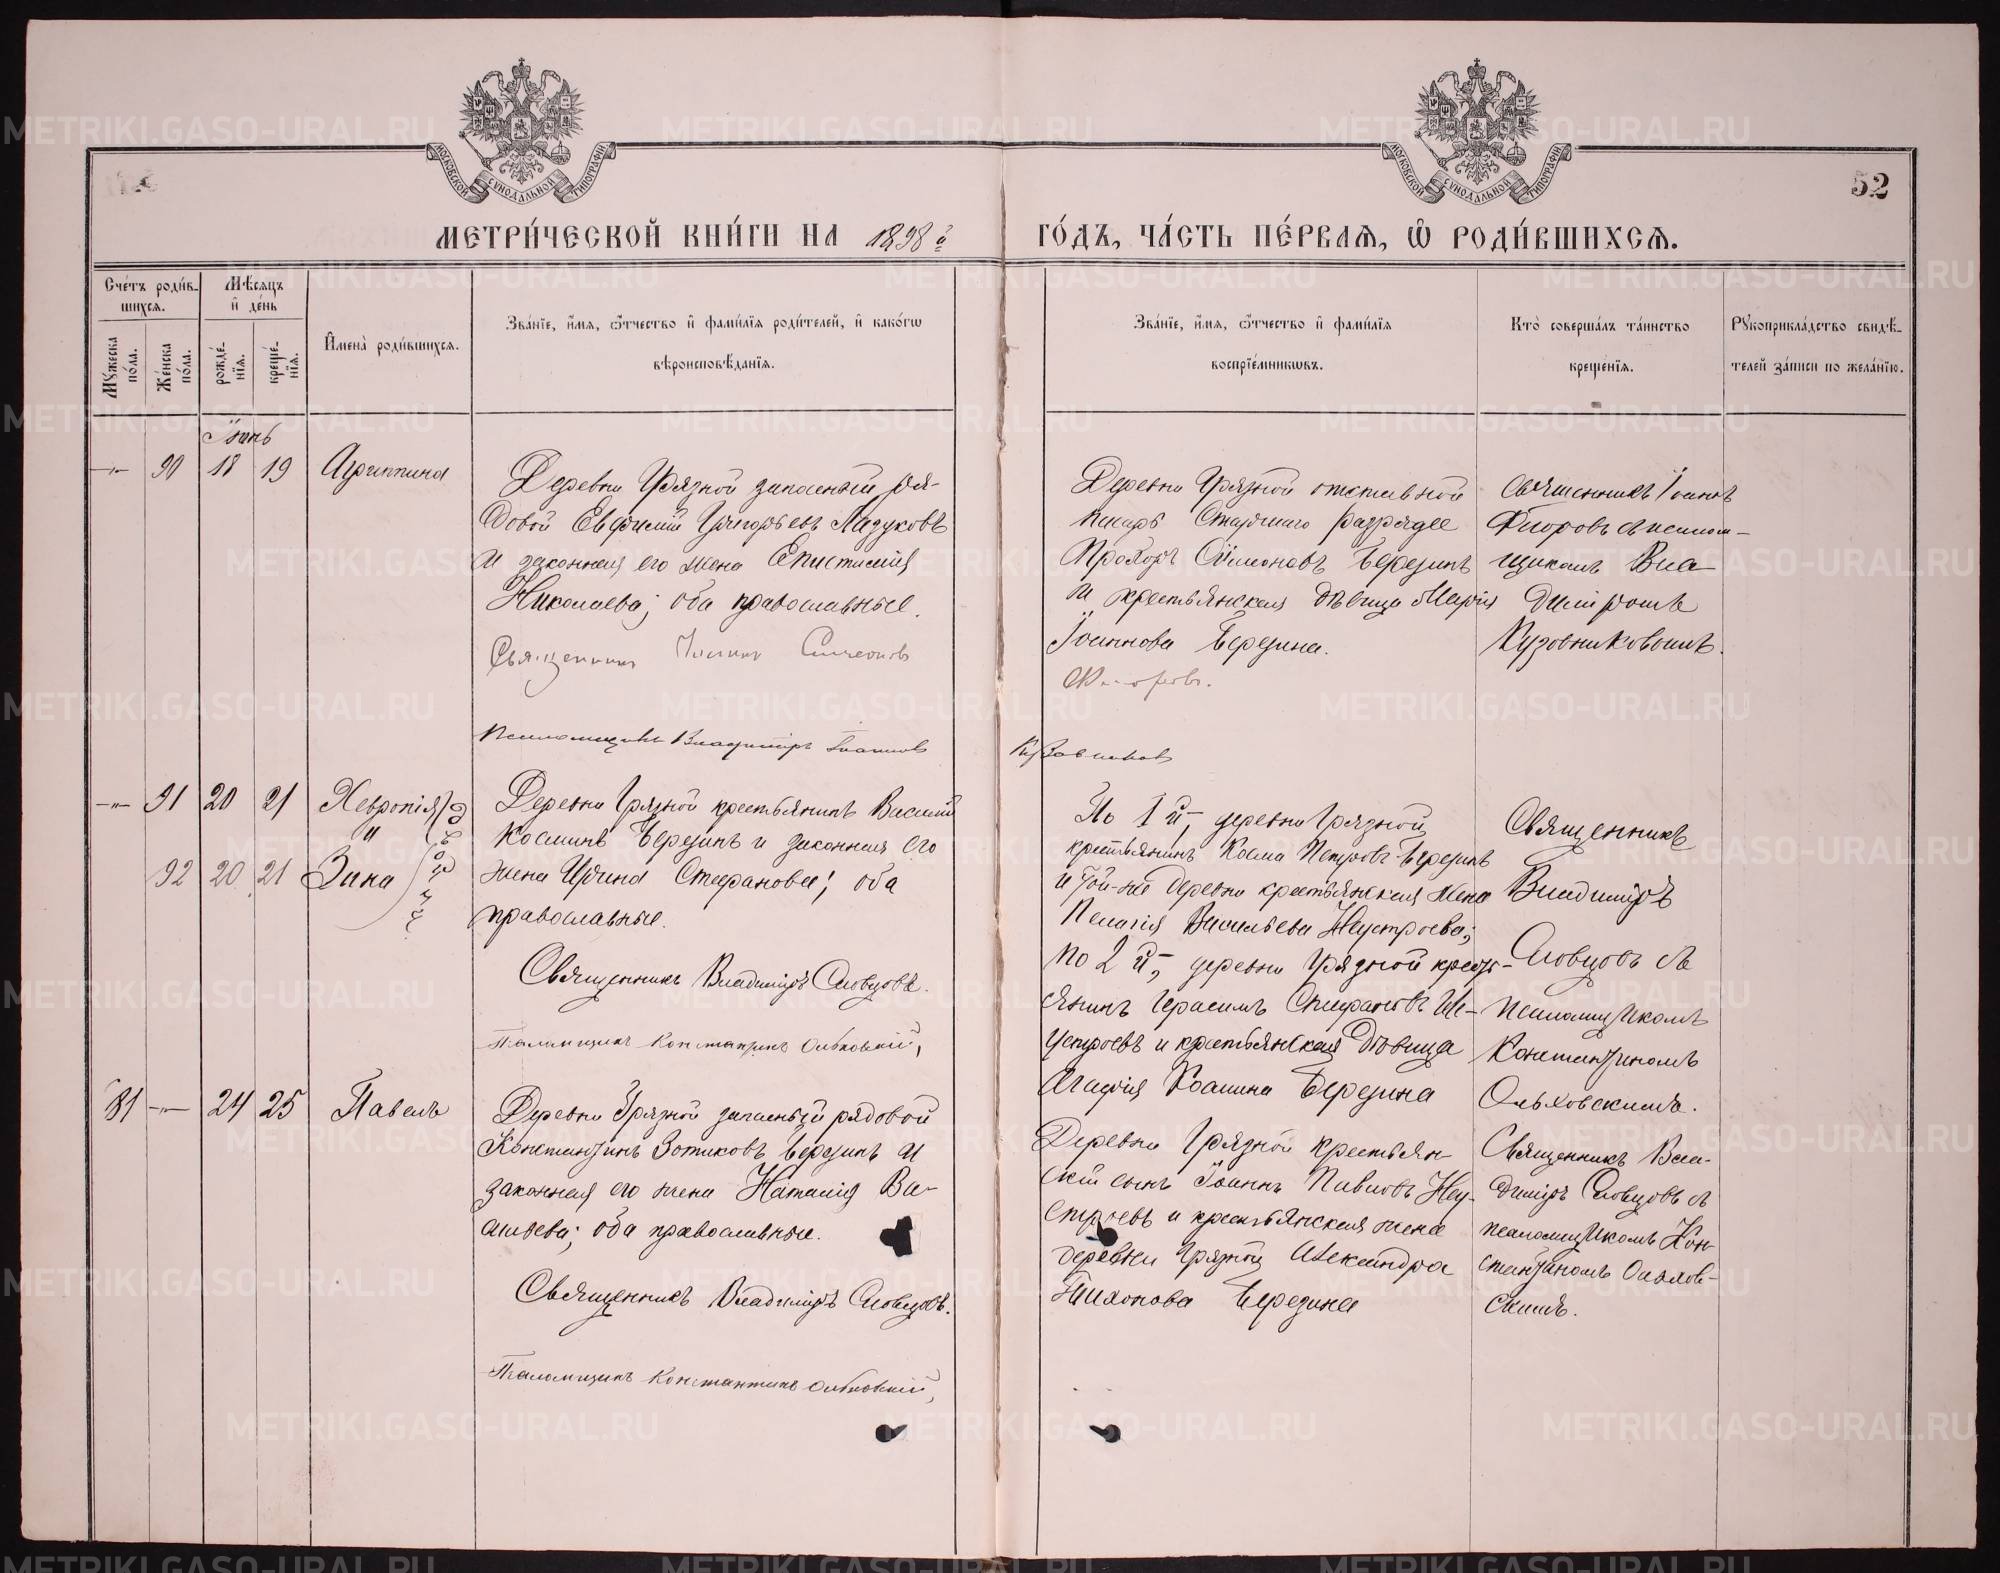 МОСКОВСКОЙ СѴНОДАЛЬНОЙ ТИПОГРАФІИ
МОСКОВСКОЙ СѴНОДАЛЬНОЙ ТИПОГРАФІИ
52
МЕТРИ́ЧЕСКОЙ КНИ́ГИ НА 1898й ГО́ДЪ, ЧА́СТЬ ПЕ́РВАѦ, Ѡ҆ РОДИ́ВШИХСѦ.
Сче́тъ роди́в-
шихсѧ.
Мꙋжеска по́ла.
Же́нска по́ла.
Мѣ́сѧцъ и҆ де́нь
рожде́нїѧ.
креще́нїѧ.
И҆мена̀ роди́вшихсѧ.
Зва́нїе, и҆́мѧ, ѻ҆́тчество и҆ фами́лїѧ роди́телей, и҆ како́гѡ
вѣроисповѣ́данїѧ.
Зва́нїе, и҆́мѧ, ѻ҆́тчество и҆ фами́лїѧ
воспрїе́мникѡвъ.
Кто̀ соверша́лъ та́инство
креще́нїѧ.
Рꙋкоприкла́дство свидѣ́-
телей за́писи по жела́нїю.
Іюнь
—„— 90 18 19 Агриппина
Деревни Грязной запасный ря-
довой Евфимій Григорьевъ Лазуковъ
и законная его жена Епистимія
Николаева; оба православные.
Священник Иоанн Симеонов
Псаломщикъ Владимиръ Иоаннов
Деревни Грязной отставной
писарь Старшаго разряда
Прохоръ Симеоновъ Березинъ
и крестьянская дѣвица Марія
Іоаннова Березина.
Кузовников
Священникъ Іоаннъ
съ псалом-
щикомъ Вла-
диміромъ
Кузовниковымъ.
—„— 91 20 21 Хевронія
„
92 20 21 Зина
двойни
Деревни Грязной крестьянинъ Василій
Косминъ Березинъ и законная его
жена Ирина Стефанова; оба
православные.
Священникъ Владиміръ Словцовъ.
Псаломщикъ Константинъ Ольховскій,
По 1й, деревни Грязной
крестьянинъ Косма Петровъ Березинъ
и той-же деревни крестьянская жена
Пелагія Васильева Неустроева;
по 2й, деревни Грязной кресть-
янинъ Герасимъ Стефановъ Не-
устроевъ и крестьянская дѣвица
Агафія Космина Березина
Священникъ
Владиміръ
Словцовъ съ
псаломщикомъ
Константиномъ
Ольховскимъ.
81 —„— 24 25 Павелъ
Деревни Грязной запасный рядовой
Константинъ Зотиковъ Березинъ и
законная его жена Наталія Ва-
сильева; оба православные.
Священникъ Владиміръ Словцовъ.
Псаломщикъ Константинъ Ольховскій,
Деревни Грязной крестьян-
скій сынъ Іоаннъ Павловъ Неу-
строевъ и крестьянская жена
деревни Грязной Александра
Тихонова Березина
Священникъ Вла-
диміръ Словцовъ съ
псаломщикомъ Кон-
стантиномъ Ольхов-
скимъ.
METRIKI.GASO-URAL.RU